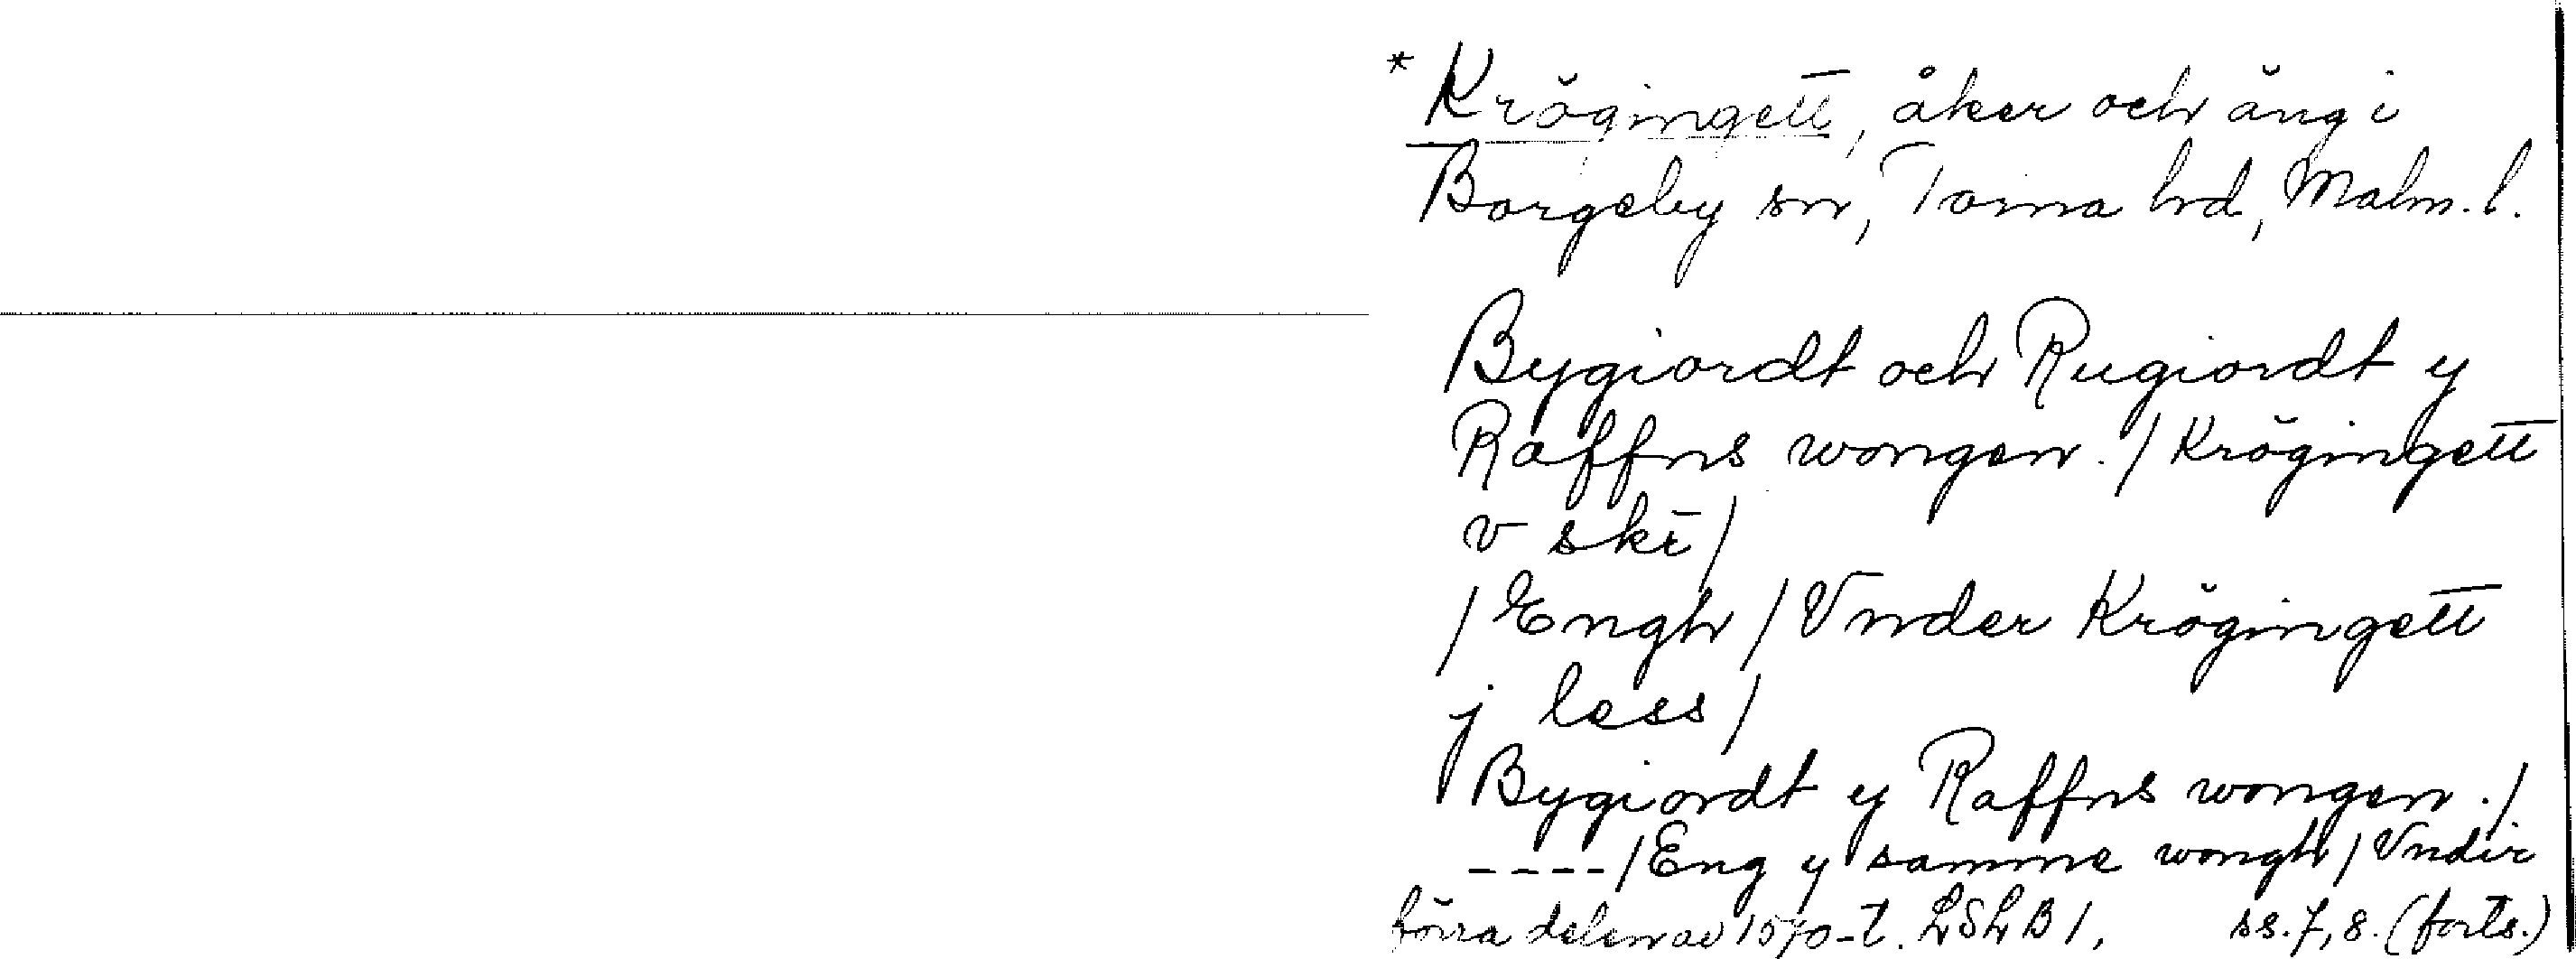 * Krögingett, åker och äng i
Borgeby sn, Torna hd, Malm. l.
Bygiordt och Rugiordt y
Raffns wongen./Krögingett
v skĩ/
/Engh/Vnder Krögingett
j less/
Bygiordt y Raffns wongen./
----/Eng y samme wongh/Vndir
förra delen av 1570-t. LSLB1, ss. 7, 8. (forts.)